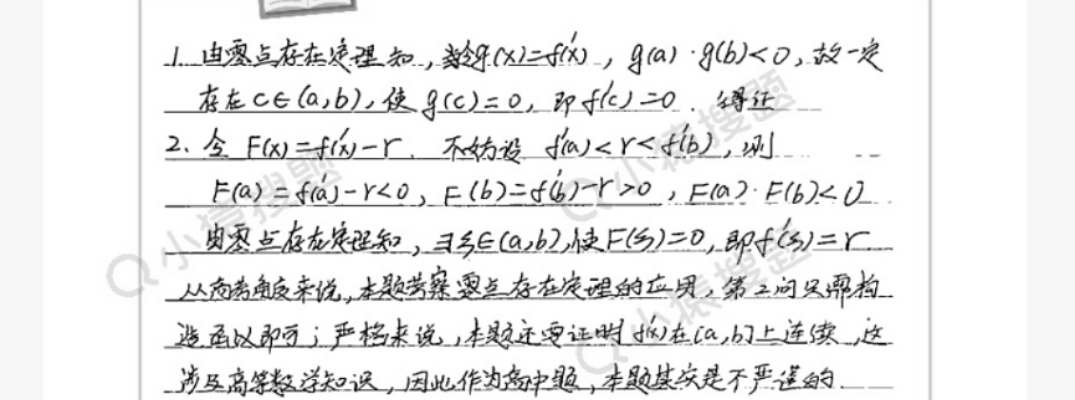 1. 由零点存在定理知,当令g(x)=f'(x),g(a)·g(b)<0,故一定
存在c∈(a,b),使g(c)=0,即f'(c)=0.得证
2.令 F(x)=f'(x)-r. 不妨设 f'(a)<r<f'(b),则
F(a)=f'(a)-r<0,F(b)=f'(b)-r>0,F(a)·F(b)<0
由零点存在定理知,∃ξ∈(a,b),使F(ξ)=0,即f'(ξ)=r
从高考角度来说,本题考察零点存在定理的应用,第2问只需构
造函以即可;严格来说,本题还需证明f'(x)在[a,b]上连续,这
涉及高等数学知识,因此作为高中题,本题其实是不严谨的.
小猿搜题
小猿搜题
小猿搜题